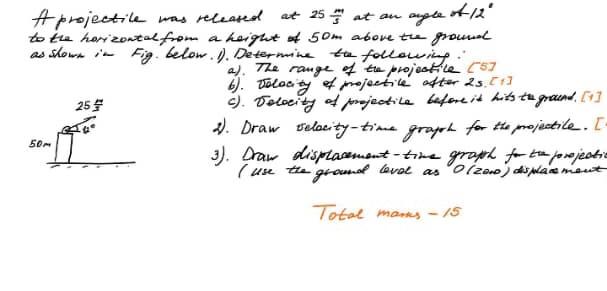 A projectile was released at 25 m/s at an angle of 12°
to the horizontal from a height of 50m above the ground
as shown in Fig. below. 1). Determine the following:
a). The range of the projectile [5]
b). Velocity of projectile after 2s. [1]
c). Velocity of projectile before it hits the ground. [1]
25 m/s
12°
50m
2). Draw velocity-time graph for the projectile. [
3). Draw displacement-time graph for the projectile
(use the ground level as 0 (zero) displacement
Total marks - 15